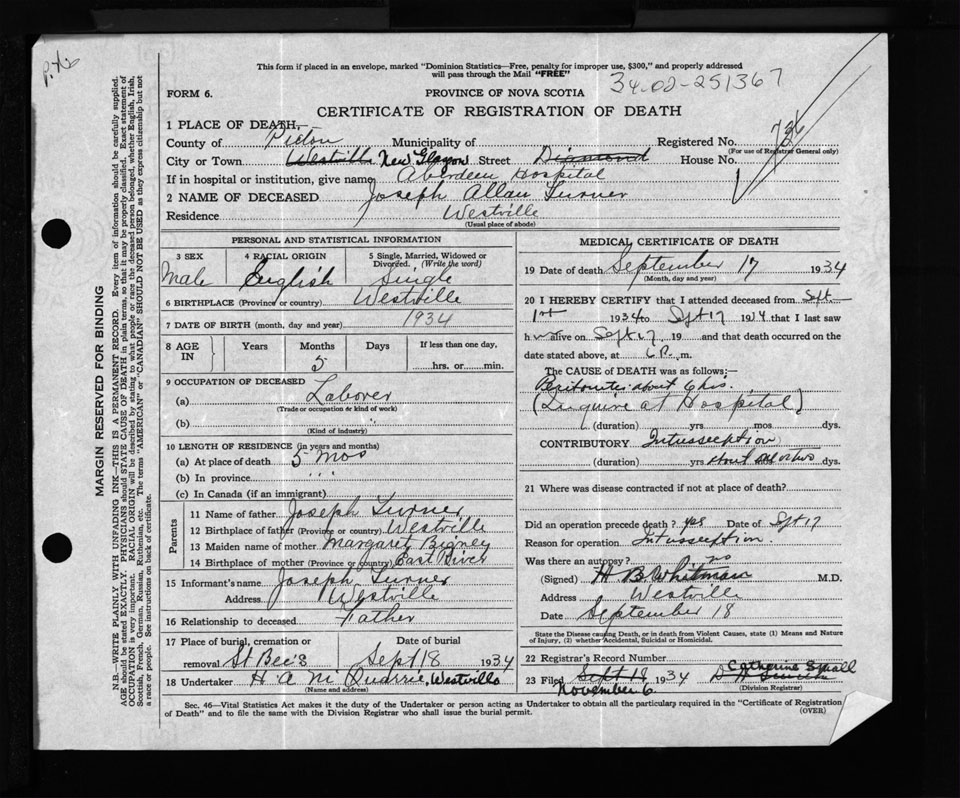 This form if placed in an envelope, marked "Dominion Statistics—Free, penalty for improper use, $300," and properly addressed
will pass through the Mail "FREE"
34-02-251367
FORM 6.
PROVINCE OF NOVA SCOTIA
CERTIFICATE OF REGISTRATION OF DEATH
1 PLACE OF DEATH,—
County of Pictou Municipality of Registered No.
(For use of Registrar General only)
City or Town Westville New Glasgow Street Diamond House No.
If in hospital or institution, give name Aberdeen Hospital
2 NAME OF DECEASED Joseph Allan Turner
Residence Westville
(Usual place of abode)
PERSONAL AND STATISTICAL INFORMATION
3 SEX 4 RACIAL ORIGIN 5 Single, Married, Widowed or Divorced. (Write the word)
Male English Single
6 BIRTHPLACE (Province or country) Westville
7 DATE OF BIRTH (month, day and year) 1934
8 AGE IN Years Months Days If less than one day,
5 hrs. or min.
9 OCCUPATION OF DECEASED
(a) Laborer
(Trade or occupation & kind of work)
(b)
(Kind of industry)
10 LENGTH OF RESIDENCE (in years and months)
(a) At place of death 5 mos
(b) In province " "
(c) In Canada (if an immigrant)
Parents
11 Name of father Joseph Turner
12 Birthplace of father (Province or country) Westville
13 Maiden name of mother Margaret Bigney
14 Birthplace of mother (Province or country) East River
15 Informant's name Joseph Turner
Address Westville
16 Relationship to deceased Father
17 Place of burial, cremation or Date of burial
removal St Bee's Sept 18 1934
18 Undertaker H A McQuarrie, Westville
(Name and address)
MEDICAL CERTIFICATE OF DEATH
19 Date of death September 17 1934
(Month, day and year)
20 I HEREBY CERTIFY that I attended deceased from Sept.
1st 1934 to Sept 17 1934 that I last saw
h alive on Sept 17 19 and that death occurred on the
date stated above, at 6 P. m.
The CAUSE of DEATH was as follows:—
Peritonitis about 6 hrs.
(Enquire at Hospital)
(duration) yrs mos dys.
CONTRIBUTORY Intussception
(duration) yrs about or two dys.
21 Where was disease contracted if not at place of death?
Did an operation precede death? yes Date of Sept 17
Reason for operation Intussception.
Was there an autopsy? no
(Signed) H B Whitman M.D.
Address Westville
Date September 18
State the Disease causing Death, or in death from Violent Causes, state (1) Means and Nature
of Injury, (2) whether Accidental, Suicidal or Homicidal.
22 Registrar's Record Number
Catherine Small
23 Filed Sept 18 1934
November 6 (Division Registrar)
Sec. 46—Vital Statistics Act makes it the duty of the Undertaker or person acting as Undertaker to obtain all the particulars required in the "Certificate of Registration
of Death" and to file the same with the Division Registrar who shall issue the burial permit. (OVER)
MARGIN RESERVED FOR BINDING
N.B.—WRITE PLAINLY WITH UNFADING INK—THIS IS A PERMANENT RECORD. Every item of information should be carefully supplied.
AGE should be stated EXACTLY. PHYSICIANS should STATE CAUSE OF DEATH in plain terms, so that it may be properly classified. Exact statement of
OCCUPATION is very important. RACIAL ORIGIN will be described by stating to what people or race the deceased person belonged, whether English, Irish,
Scottish, French, German, Russian, Ruthenian, etc. The terms "AMERICAN" or "CANADIAN" SHOULD NOT BE USED as they express citizenship but not
a race or people. See instructions on back of certificate.